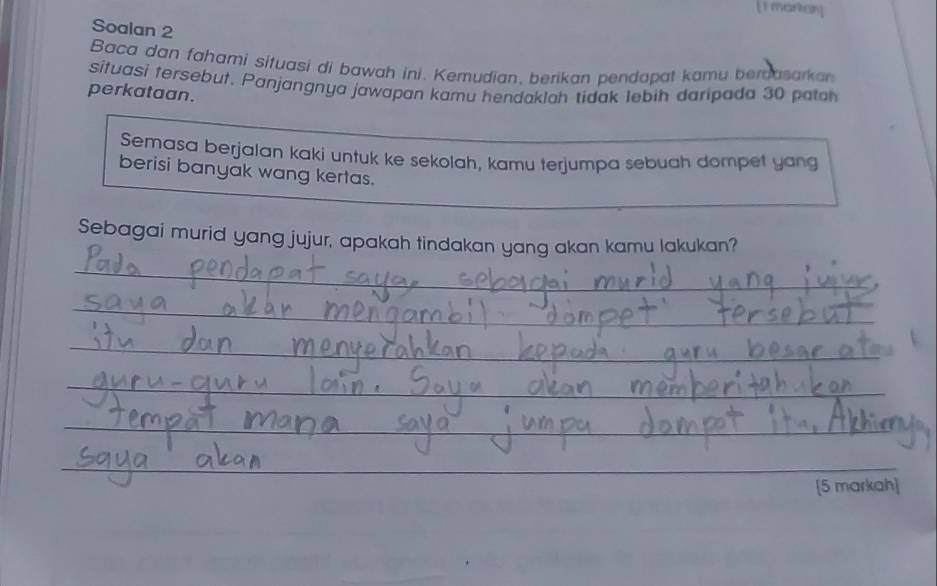 [1 markah]
Soalan 2
Baca dan fahami situasi di bawah ini. Kemudian, berikan pendapat kamu berdasarkan
situasi tersebut. Panjangnya jawapan kamu hendaklah tidak lebih daripada 30 patah
perkataan.
Semasa berjalan kaki untuk ke sekolah, kamu terjumpa sebuah dompet yang
berisi banyak wang kertas.
Sebagai murid yang jujur, apakah tindakan yang akan kamu lakukan?
Pada pendapat saya, sebagai murid yang jujur,
saya akan mengambil dompet tersebut
itu dan menyerahkan kepada guru besar atau
guru-guru lain. Saya akan memberitahukan
tempat mana saya jumpa dompet itu. Akhirnya,
saya akan
[5 markah]